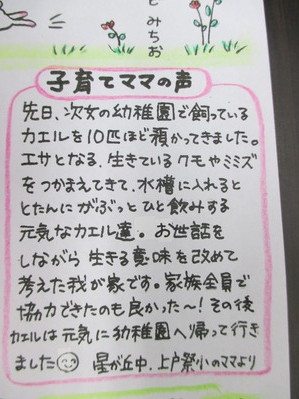 とみちお
子育てママの声
先日、次女の幼稚園で飼っている
カエルを10匹ほど預かってきました。
エサとなる、生きているクモやミミズ
をつかまえてきて、水槽に入れると
とたんに がぶっと ひと飲みする
元気なカエル達。 お世話を
しながら 生きる意味を改めて
考えた我が家です。家族全員で
協力できたのも良かった～！その後
カエルは元気に幼稚園へ帰って行き
ました😊 星が丘中、上戸祭小のママより